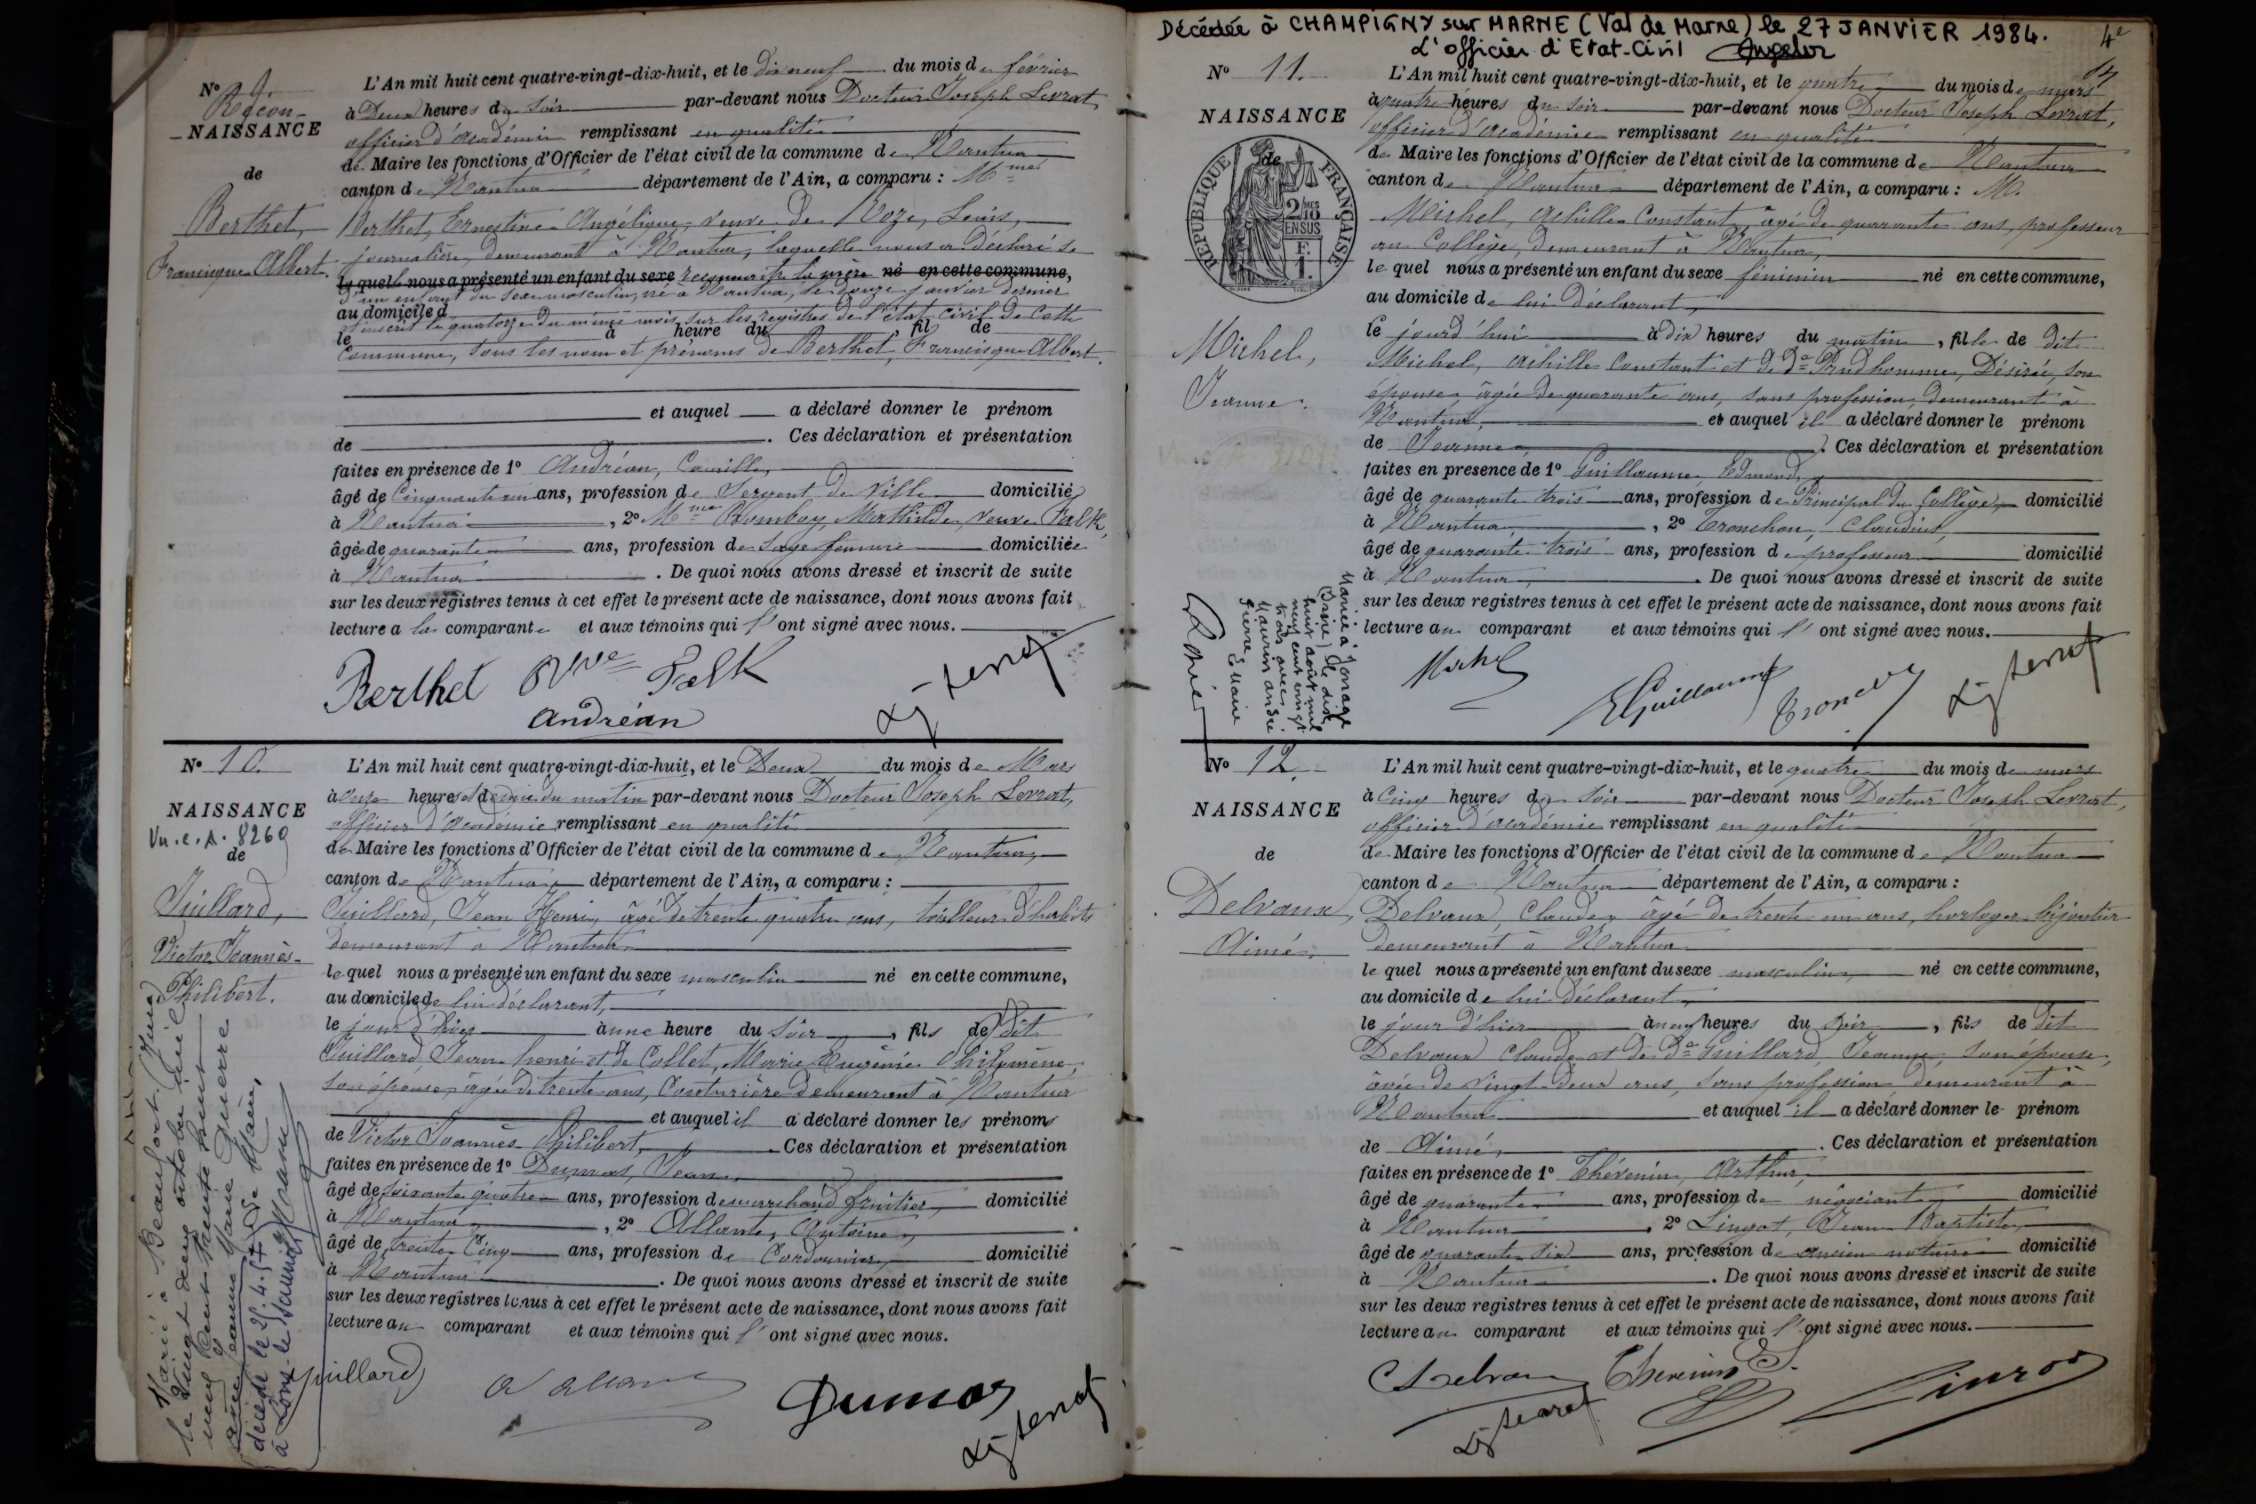 N° 9
Recon
NAISSANCE
de
Berthet,
Francisque Albert.
L'An mil huit cent quatre-vingt-dix-huit, et le dix neuf du mois de février
à Deux heures du soir par-devant nous Docteur Joseph Levrat,
officier d'académie remplissant en qualité
de Maire les fonctions d'Officier de l'état civil de la commune de Nantua
canton de Nantua département de l'Ain, a comparu : Mme
Berthet, Ernestine Angélique, veuve de Roze, Louis,
journalière, demeurant à Nantua, laquelle nous a déclaré se
lequel nous a présenté un enfant du sexe reconnaître la mère né en cette commune,
d'un enfant du sexe masculin, né à Nantua, le douze janvier dernier
au domicile d
et inscrit le quatorze du même mois sur les registres de l'état civil de cette
le à heure du , fil de
commune, sous les nom et prénoms de Berthet, Francisque Albert.
et auquel a déclaré donner le prénom
de . Ces déclaration et présentation
faites en présence de 1° Andréan, Camille,
âgé de Cinquante un ans, profession de Sergent de Ville domicilié
à Nantua , 2° Mme Mathilde, veuve Falk,
âgée de quarante ans, profession de sage femme domiciliée
à Nantua . De quoi nous avons dressé et inscrit de suite
sur les deux registres tenus à cet effet le présent acte de naissance, dont nous avons fait
lecture a la comparante et aux témoins qui l'ont signé avec nous.
Berthet Vve Falk
Andréan
N° 10.
NAISSANCE
Vu. e. A. 8260
de
Juillard,
Victor Joannès-
Philibert.
L'An mil huit cent quatre-vingt-dix-huit, et le Deux du mois de Mars
à onze heures et demie du matin par-devant nous Docteur Joseph Levrat,
officier d'académie remplissant en qualité
de Maire les fonctions d'Officier de l'état civil de la commune de Nantua,
canton de Nantua, département de l'Ain, a comparu :
Juillard, Jean Henri, âgé de trente quatre ans, tailleur d'habits
demeurant à Nantua
lequel nous a présenté un enfant du sexe masculin né en cette commune,
au domicile de lui déclarant,
le jour d'hier à une heure du soir , fils de dit
Juillard Jean henri et de Collet, Marie Eugénie Philomène,
son épouse, âgée de trente ans, Couturière demeurant à Nantua
et auquel il a déclaré donner les prénoms
de Victor Joannès Philibert, . Ces déclaration et présentation
faites en présence de 1° Dumas, Jean,
âgé de soixante quatre ans, profession de marchand fruitier, domicilié
à Nantua , 2° Allante, Antoine,
âgé de trente Cinq ans, profession de Cordonnier, domicilié
à Nantua . De quoi nous avons dressé et inscrit de suite
sur les deux registres tenus à cet effet le présent acte de naissance, dont nous avons fait
lecture au comparant et aux témoins qui l'ont signé avec nous.
Juillard Dumas
Marié à Beaufort (Jura)
le vingt deux octobre mil
neuf cent trente huit
avec Jeanne Marie Querre
décédé le 21.4.57
à Lons-le-Saunier
Décédée à CHAMPIGNY sur MARNE (Val de Marne) le 27 JANVIER 1984.
l'officier d'Etat-Civil
N° 11.
NAISSANCE
de
REPUBLIQUE FRANÇAISE
Michel,
Jeanne.
L'An mil huit cent quatre-vingt-dix-huit, et le quatre du mois de mars
à quatre heures du soir par-devant nous Docteur Joseph Levrat,
officier d'académie remplissant en qualité
de Maire les fonctions d'Officier de l'état civil de la commune de Nantua
canton de Nantua département de l'Ain, a comparu : M.
Michel, Achille Constant âgé de quarante ans, professeur
au Collège, demeurant à Nantua,
lequel nous a présenté un enfant du sexe féminin né en cette commune,
au domicile de lui déclarant,
le jourd'hui à dix heures du matin , fille de dit
Michel, Achille Constant et de De Prudhomme, Désirée, son
épouse, âgée de quarante ans, sans profession, demeurant à
Nantua, et auquel il a déclaré donner le prénom
de Jeanne . Ces déclaration et présentation
faites en présence de 1° Guillaume, Edmond,
âgé de quarante trois ans, profession de Principal du Collège, domicilié
à Nantua , 2° Tronchon, Claudius,
âgé de quarante trois ans, profession de professeur domicilié
à Nantua, . De quoi nous avons dressé et inscrit de suite
sur les deux registres tenus à cet effet le présent acte de naissance, dont nous avons fait
lecture au comparant et aux témoins qui l'ont signé avec nous.
Mariée à Jonage
(Isère) le dix
huit août mil
neuf cent vingt
trois avec
Maurin André
Pierre Marie
Michel EGuillaume
N° 12.
NAISSANCE
de
Delvaux,
Aimé.
L'An mil huit cent quatre-vingt-dix-huit, et le quatre du mois de mars
à Cinq heures du soir par-devant nous Docteur Joseph Levrat,
officier d'académie remplissant en qualité
de Maire les fonctions d'Officier de l'état civil de la commune de Nantua
canton de Nantua département de l'Ain, a comparu :
Delvaux, Claude, âgé de trente un ans, horloger bijoutier
demeurant à Nantua
lequel nous a présenté un enfant du sexe masculin, né en cette commune,
au domicile de lui déclarant,
le jour d'hier à neuf heures du soir , fils de dit
Delvaux Claude et de De Guillard, Jeanne, son épouse,
âgée de vingt deux ans, sans profession demeurant à
Nantua et auquel il a déclaré donner le prénom
de Aimé, . Ces déclaration et présentation
faites en présence de 1° Thévenin, Arthur,
âgé de quarante ans, profession de négociant, domicilié
à Nantua , 2° Lingot, Jean Baptiste,
âgé de quarante six ans, profession de ancien notaire domicilié
à Nantua . De quoi nous avons dressé et inscrit de suite
sur les deux registres tenus à cet effet le présent acte de naissance, dont nous avons fait
lecture au comparant et aux témoins qui l'ont signé avec nous.
Thevenin